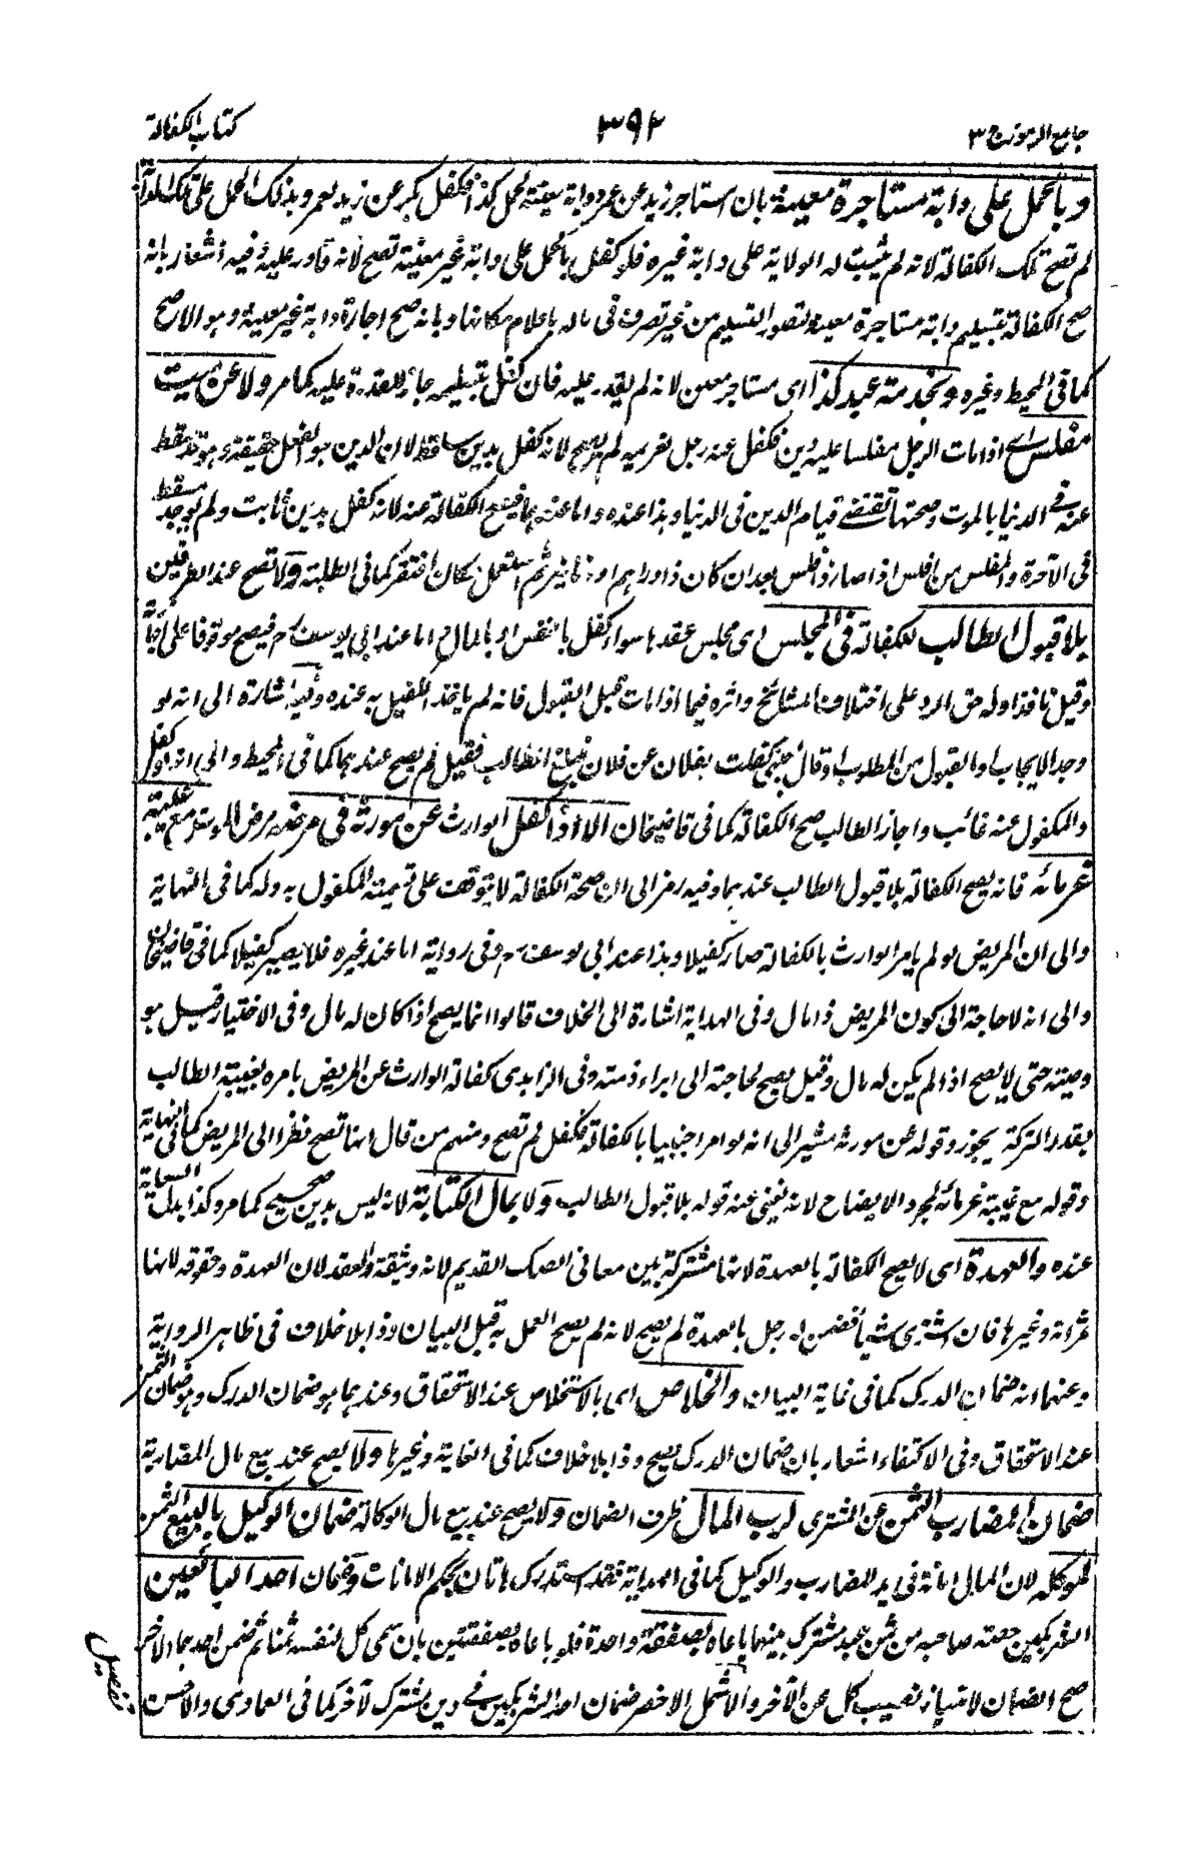 جامع الرموز ج ٣
٣٩٢
كتاب الكفالة
وبالحمل على دابة مستاجرة معينة بان استاجر زيد عن عمرو دابة معينة لحمل كذا فكفل بكر عن زيد لعمرو بذلك الحمل على تلك الدابة
لم تصح تلك الكفالة لانه لم يثبت له الولاية على دابة غيره فلو كفل بالحمل على دابة غير معينة تصح لانه قادر عليه وفيه اشعار بانه
صح الكفالة بتسليم دابة مستاجرة معينة لتصور التسليم من غير تصرف فى ماله باعلام مكانها وبانه صح اجارة دابة غير معينة وهو الاصح
كما فى المحيط وغيره وبخدمة عبد كذا اى مستاجر معين لانه لم يقدر عليه فان كفل بتسليمه جاز للقدرة عليه كما مر ولا عن ميت
مفلس اى اذا مات الرجل مفلسا عليه دين فكفل عنه رجل لغريمه لم يصح لانه كفل بدين ساقط لان الدين هو الفعل حقيقة وهو قد سقط
عنه فى الدنيا بالموت وصحتها تقتضى قيام الدين فى الدنيا وهذا عنده واما عندهما فيصح الكفالة عنه لانه كفل بدين ثابت ولم يوجد مسقط
فى الآخرة والمفلس من افلس اذا صار ذا فلس بعد ان كان ذا دراهم او دنانير ثم استعمل مكان افتقر كما فى الطلبة ولا تصح عند الطرفين
بلا قبول الطالب للكفالة فى المجلس اى مجلس عقدها سواء كفل بالنفس او بالمال واما عند ابى يوسف رح فيصح موقوفا على اجازته
وقيل نافذا وله حق الرد على اختلاف المشائخ واثره فيما اذا مات قبل القبول فانه لم ياخذ الكفيل به عنده وفيه اشارة الى انه لو
وجد الايجاب والقبول من المطلوب او قال كفلت بفلان عن فلان فبلغ الطالب فقبل لم يصح عندهما كما فى المحيط والى انه لو كفل
والمكفول عنه غائب واجاز الطالب صح الكفالة كما فى قاضيخان الا اذا كفل الوارث عن مورثه فى مرضه مرض الموت مع غيبة
غرمائه فانه يصح الكفالة بلا قبول الطالب عندهما وفيه رمز الى ان صحة الكفالة لا تتوقف على تسمية المكفول به وله كما فى النهاية
والى ان المريض لو لم يامر الوارث بالكفالة صار كفيلا وهذا عند ابى يوسف رح وفى رواية اما عند غيره فلا يصير كفيلا كما فى قاضيخان
والى انه لا حاجة الى كون المريض ذا مال وفى الهداية اشارة الى الخلاف قالوا انما يصح اذا كان له مال وفى الاختيار قيل هو
وصية حتى لا يصح اذا لم يكن له مال وقيل يصح لحاجته الى ابراء ذمته وفى الزاهدى كفالة الوارث عن المريض بامره بغيبة الطالب
بقدر التركة يجوز وقوله عن مورثه مشير الى انه لو امر اجنبيا بالكفالة فكفل لم تصح ومنهم من قال انها تصح نظرا الى المريض كما فى النهاية
وقوله مع غيبة غرمائه لمجرد الايضاح لانه يغنى عنه قوله بلا قبول الطالب ولا بمال الكتابة لانه ليس بدين صحيح كما مر وكذا بدل السعاية
عنده والعهدة اى لا يصح الكفالة بالعهدة لانها مشتركة بين معانى الصك القديم لانه وثيقة والعقد لان العهدة وحقوقه لانها
ثمراته وغيرها فان اشترى شيئا فضمن له رجل بالعهدة لم يصح لانه لم يصح العمل به قبل البيان وذا بلا خلاف فى ظاهر الرواية
وعنهما انه ضمان الدرك كما فى غاية البيان والخلاص اى بالاستخلاص عند الاستحقاق وعندهما هو ضمان الدرك وهو ضمان الثمن
عند الاستحقاق وفى الاكتفاء اشعار بان ضمان الدرك يصح وذا بلا خلاف كما فى الغاية وغيرها ولا يصح عند بيع مال المضاربة
ضمان المضارب الثمن عن المشترى لرب المال ظرف الضمان ولا يصح عند بيع مال الوكالة ضمان الوكيل بالبيع الثمن
لموكله لان المال امانة فى يد المضارب والوكيل كما فى الهداية فقد استدرك هاتان بحكم الامانات وضمان احد البائعين
الشريكين حصة صاحبه من ثمن عبد مشترك بينهما باعاه بصفقة واحدة فلو باعاه بصفقتين بان سمى كل لنفسه ثمنا ثم ضمن احدهما الآخر
صح الضمان لامتياز نصيب كل من الآخر والاشمل الاخصر ضمان احد الشريكين فى دين مشترك لآخر كما فى العمادى والاحسن
تفصيل